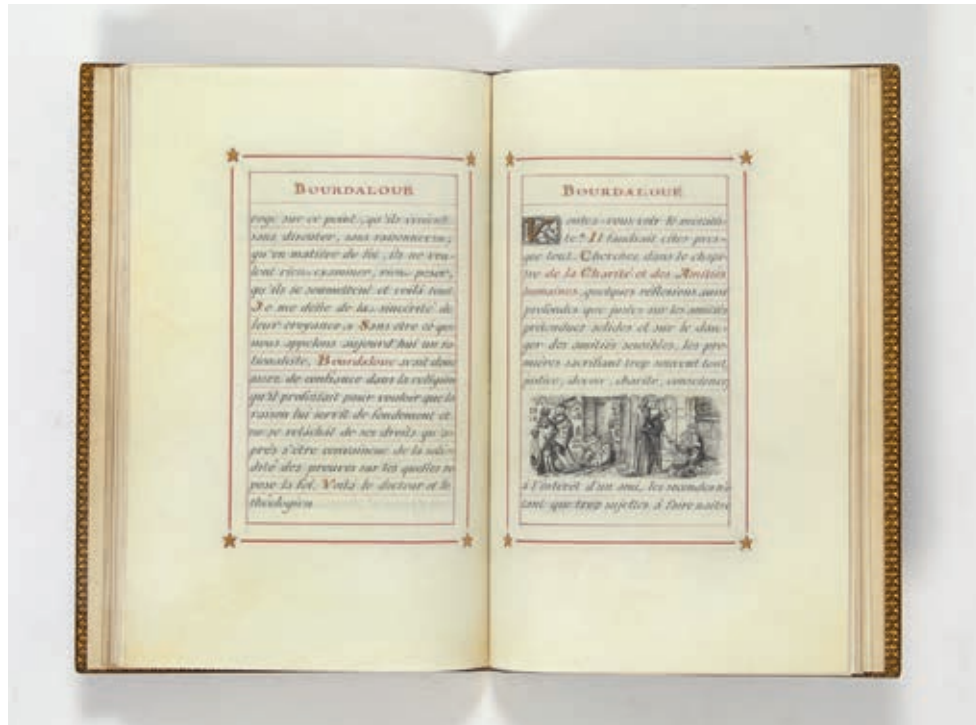 BOURDALOUE
rage sur ce point, qu'ils croient
sans discuter, sans raisonner;
qu'en matière de foi, ils ne veu-
lent rien examiner, rien peser,
qu'ils se soumettent et voilà tout
Je me défie de la sincérité de
leur croyance. Sans être ce que
nous appelons aujourd'hui un ra-
tionaliste, Bourdaloue avait donc
assez de confiance dans la religion
qu'il professait pour vouloir que la
raison lui servît de fondement et
ne se relâchât de ses droits qu'a-
près s'être convaincue de la soli-
dité des preuves sur lesquelles re-
pose la foi. Voilà le docteur et le
théologien
BOURDALOUE
Voulez-vous voir le moralis-
te? Il faudrait citer pres-
que tout. Cherchez dans le chapi-
tre de la Charité et des Amitiés
humaines, quelques réflexions aussi
profondes que justes sur les amitiés
prétendues solides et sur le dan-
ger des amitiés sensibles, les pre-
mières sacrifiant trop souvent tout,
justice, devoir, charité, conscience,
à l'intérêt d'un ami, les secondes n'é-
tant que trop sujettes à faire naître